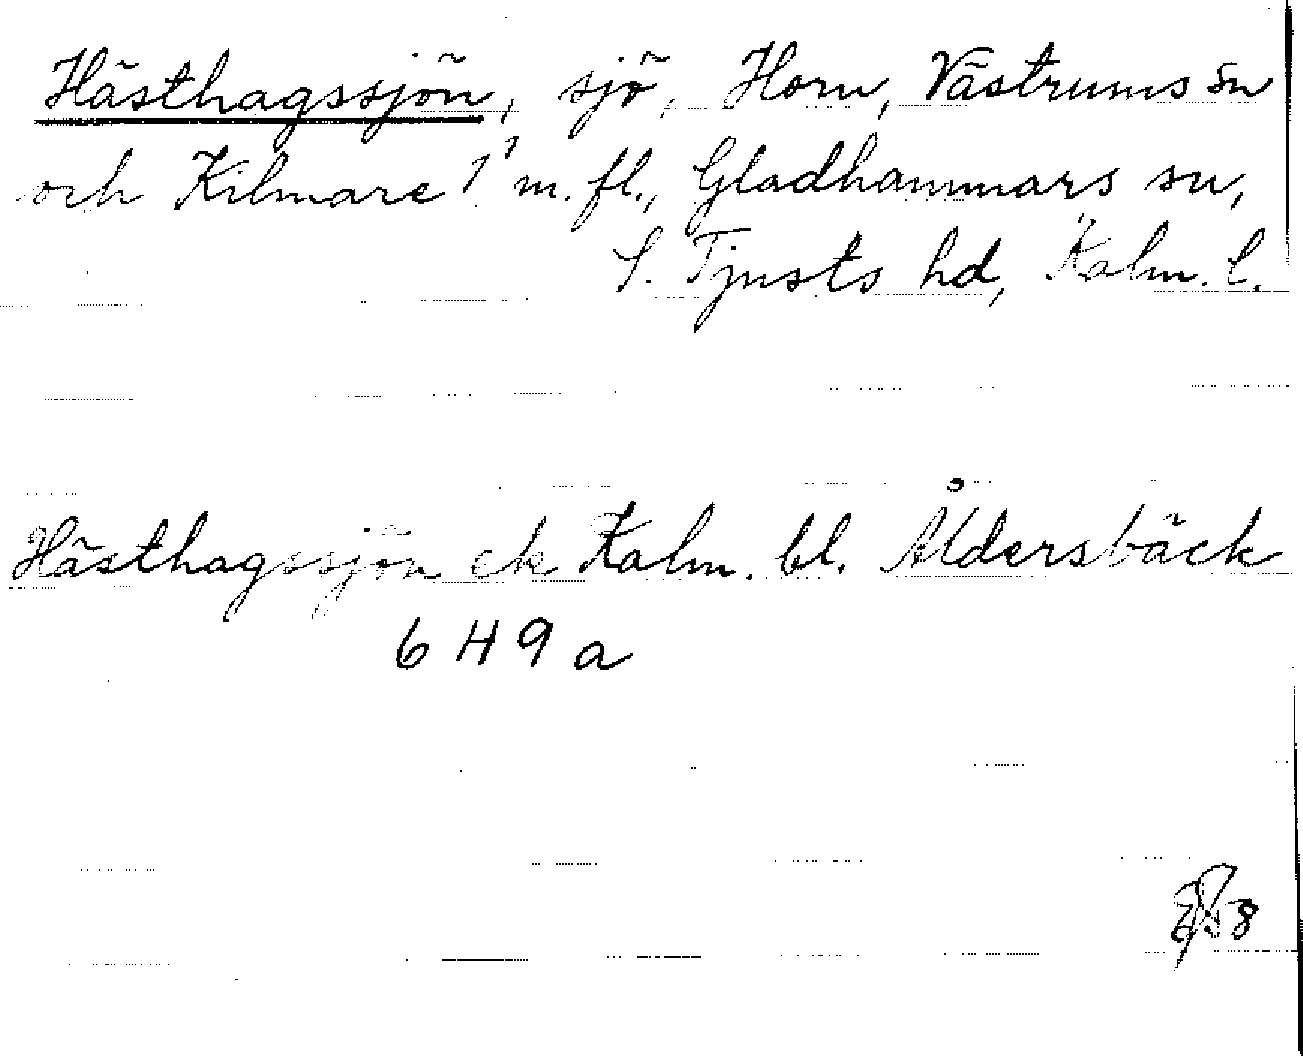 Hästhagssjön, sjö, Horn, Västrums sn
och Kilmare 1¹ m. fl., Gladhammars sn,
S. Tjusts hd, Kalm. l.
Hästhagssjön ek Kalm. bl. Åldersbäck
6 H 9 a